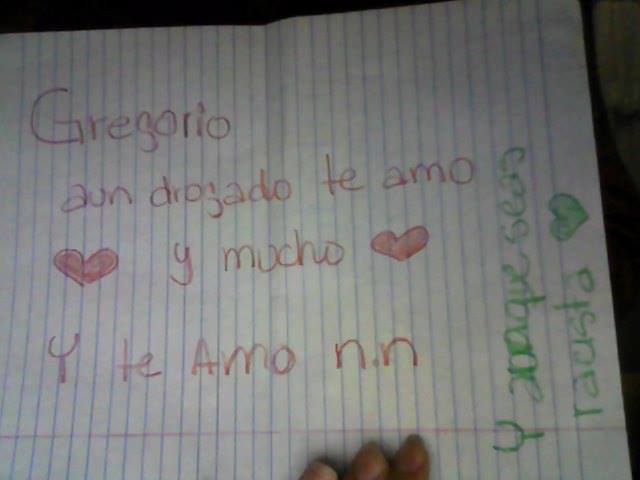 Gregorio
aun drogado te amo
y mucho
Y te Amo n.n
Y aunque seas
racista